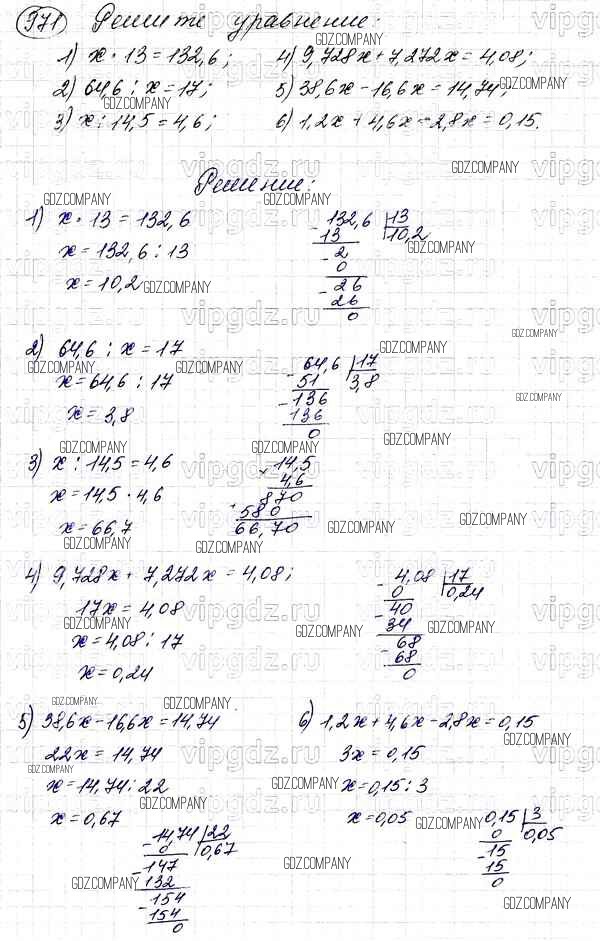 971 Решите уравнение:
1) x · 13 = 132,6; 4) 9,728x + 7,272x = 4,08;
2) 64,6 : x = 17; 5) 38,6x - 16,6x = 14,74;
3) x : 14,5 = 4,6; 6) 1,2x + 4,6x - 2,8x = 0,15.
Решение:
1) x · 13 = 132,6
x = 132,6 : 13
x = 10,2
132,6 | 13
13 10,2
2
0
26
26
0
2) 64,6 : x = 17
x = 64,6 : 17
x = 3,8
64,6 | 17
51 3,8
136
136
0
3) x : 14,5 = 4,6
x = 14,5 · 4,6
x = 66,7
14,5
4,6
870
+ 580
66,70
4) 9,728x + 7,272x = 4,08;
17x = 4,08
x = 4,08 : 17
x = 0,24
4,08 | 17
0 0,24
40
34
68
68
0
5) 38,6x - 16,6x = 14,74
22x = 14,74
x = 14,74 : 22
x = 0,67
14,74 | 22
0 0,67
147
132
154
154
0
6) 1,2x + 4,6x - 2,8x = 0,15
3x = 0,15
x = 0,15 : 3
x = 0,05
0,15 | 3
0 0,05
15
15
0
GDZ.COMPANY
vipgdz.ru